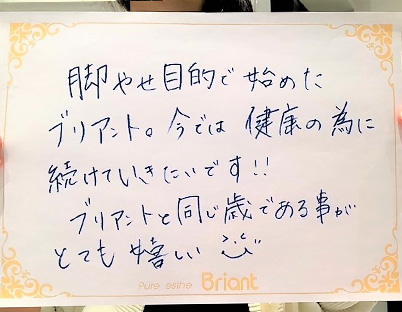 脚やせ目的で始めた
ブリアント。今では健康の為に
続けていきたいです!!
ブリアントと同じ歳である事が
とても嬉しい
Pure esthe Briant